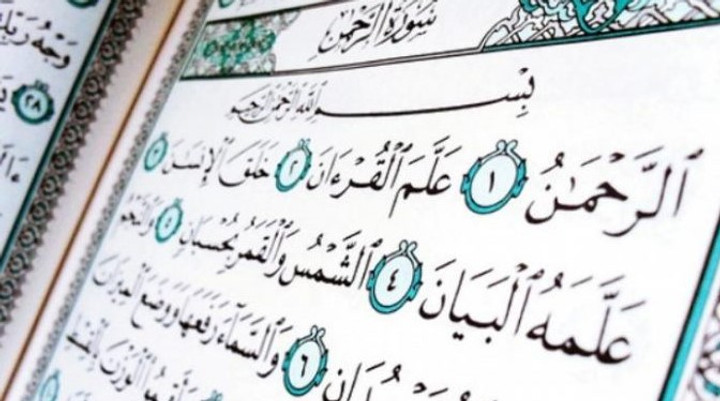 سُورَةُ الرَّحْمَٰنِ
بِسْمِ اللَّهِ الرَّحْمَٰنِ الرَّحِيمِ
ٱلرَّحْمَٰنُ ١ عَلَّمَ ٱلْقُرْءَانَ ٢ خَلَقَ ٱلْإِنسَٰنَ ٣
عَلَّمَهُ ٱلْبَيَانَ ٤ ٱلشَّمْسُ وَٱلْقَمَرُ بِحُسْبَانٍ ٥ وَٱلنَّجْمُ
يَسْجُدَانِ ٦ وَٱلسَّمَآءَ رَفَعَهَا وَوَضَعَ ٱلْمِيزَانَ
ٱلْوَزْنَ بِٱلْقِسْطِ
وَجْهُ رَبِّكَ
٢٨